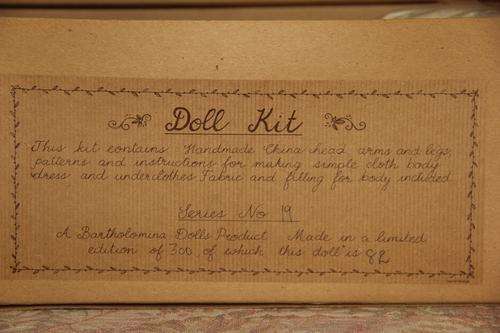 Doll Kit
This kit contains Handmade China head arms and legs,
patterns and instructions for making simple cloth body
dress and underclothes Fabric and filling for body included
Series No 19
A Bartholomina Dolls Product Made in a limited
edition of 300 of which this doll is 82